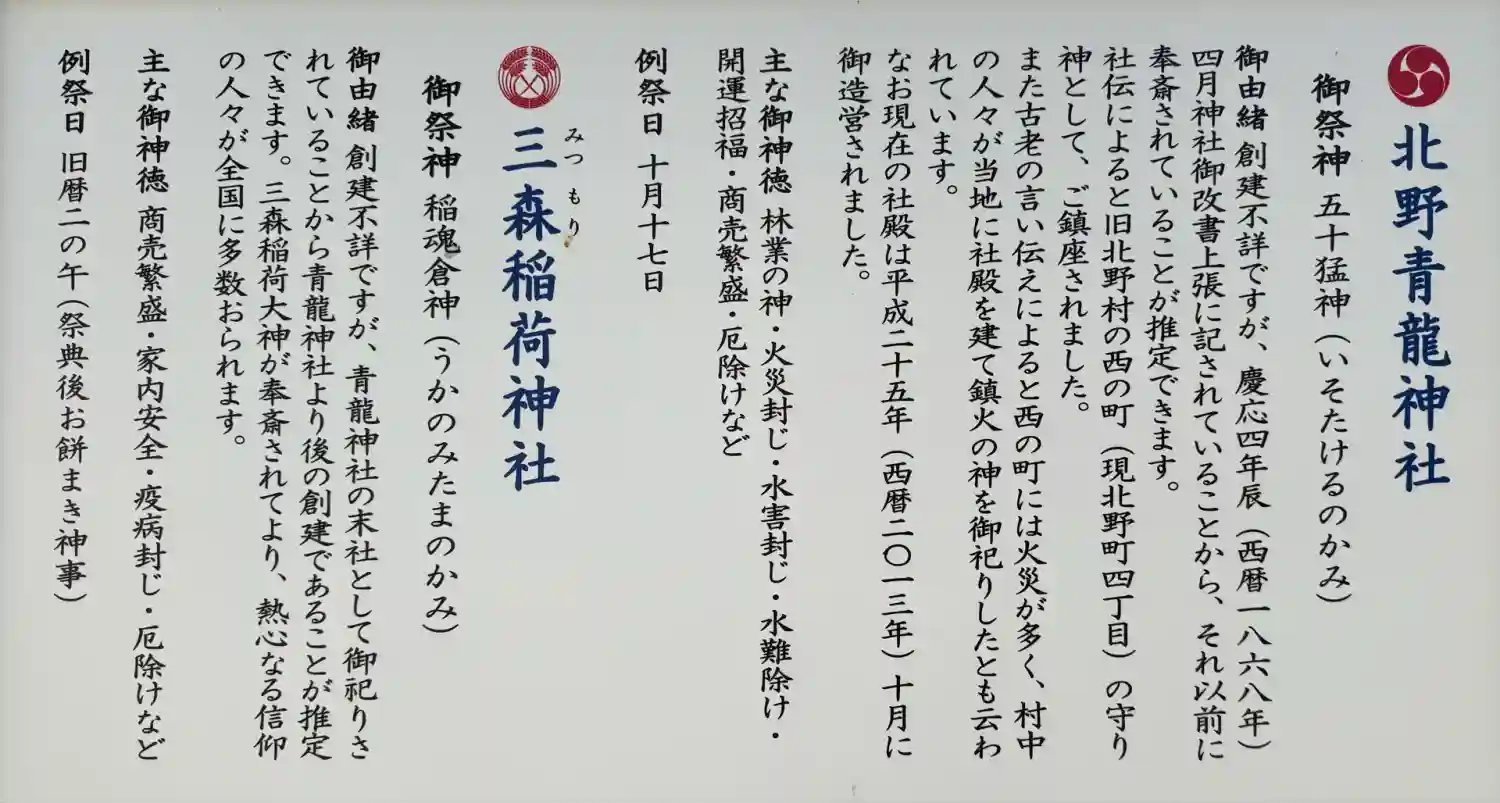 北野青龍神社
御祭神 五十猛神（いそたけるのかみ）
御由緒 創建不詳ですが、慶応四年辰（西暦一八六八年）
四月神社御改書上張に記されていることから、それ以前に
奉斎されていることが推定できます。
社伝によると旧北野村の西の町（現北野町四丁目）の守り
神として、ご鎮座されました。
また古老の言い伝えによると西の町には火災が多く、村中
の人々が当地に社殿を建て鎮火の神を御祀りしたとも云わ
れています。
なお現在の社殿は平成二十五年（西暦二〇一三年）十月に
御造営されました。
主な御神徳 林業の神・火災封じ・水害封じ・水難除け・
開運招福・商売繁盛・厄除けなど
例祭日 十月十七日
三森稲荷神社
みつ もり
御祭神 稲魂倉神（うかのみたまのかみ）
御由緒 創建不詳ですが、青龍神社の末社として御祀りさ
れていることから青龍神社より後の創建であることが推定
できます。三森稲荷大神が奉斎されてより、熱心なる信仰
の人々が全国に多数おられます。
主な御神徳 商売繁盛・家内安全・疫病封じ・厄除けなど
例祭日 旧暦二の午（祭典後お餅まき神事）